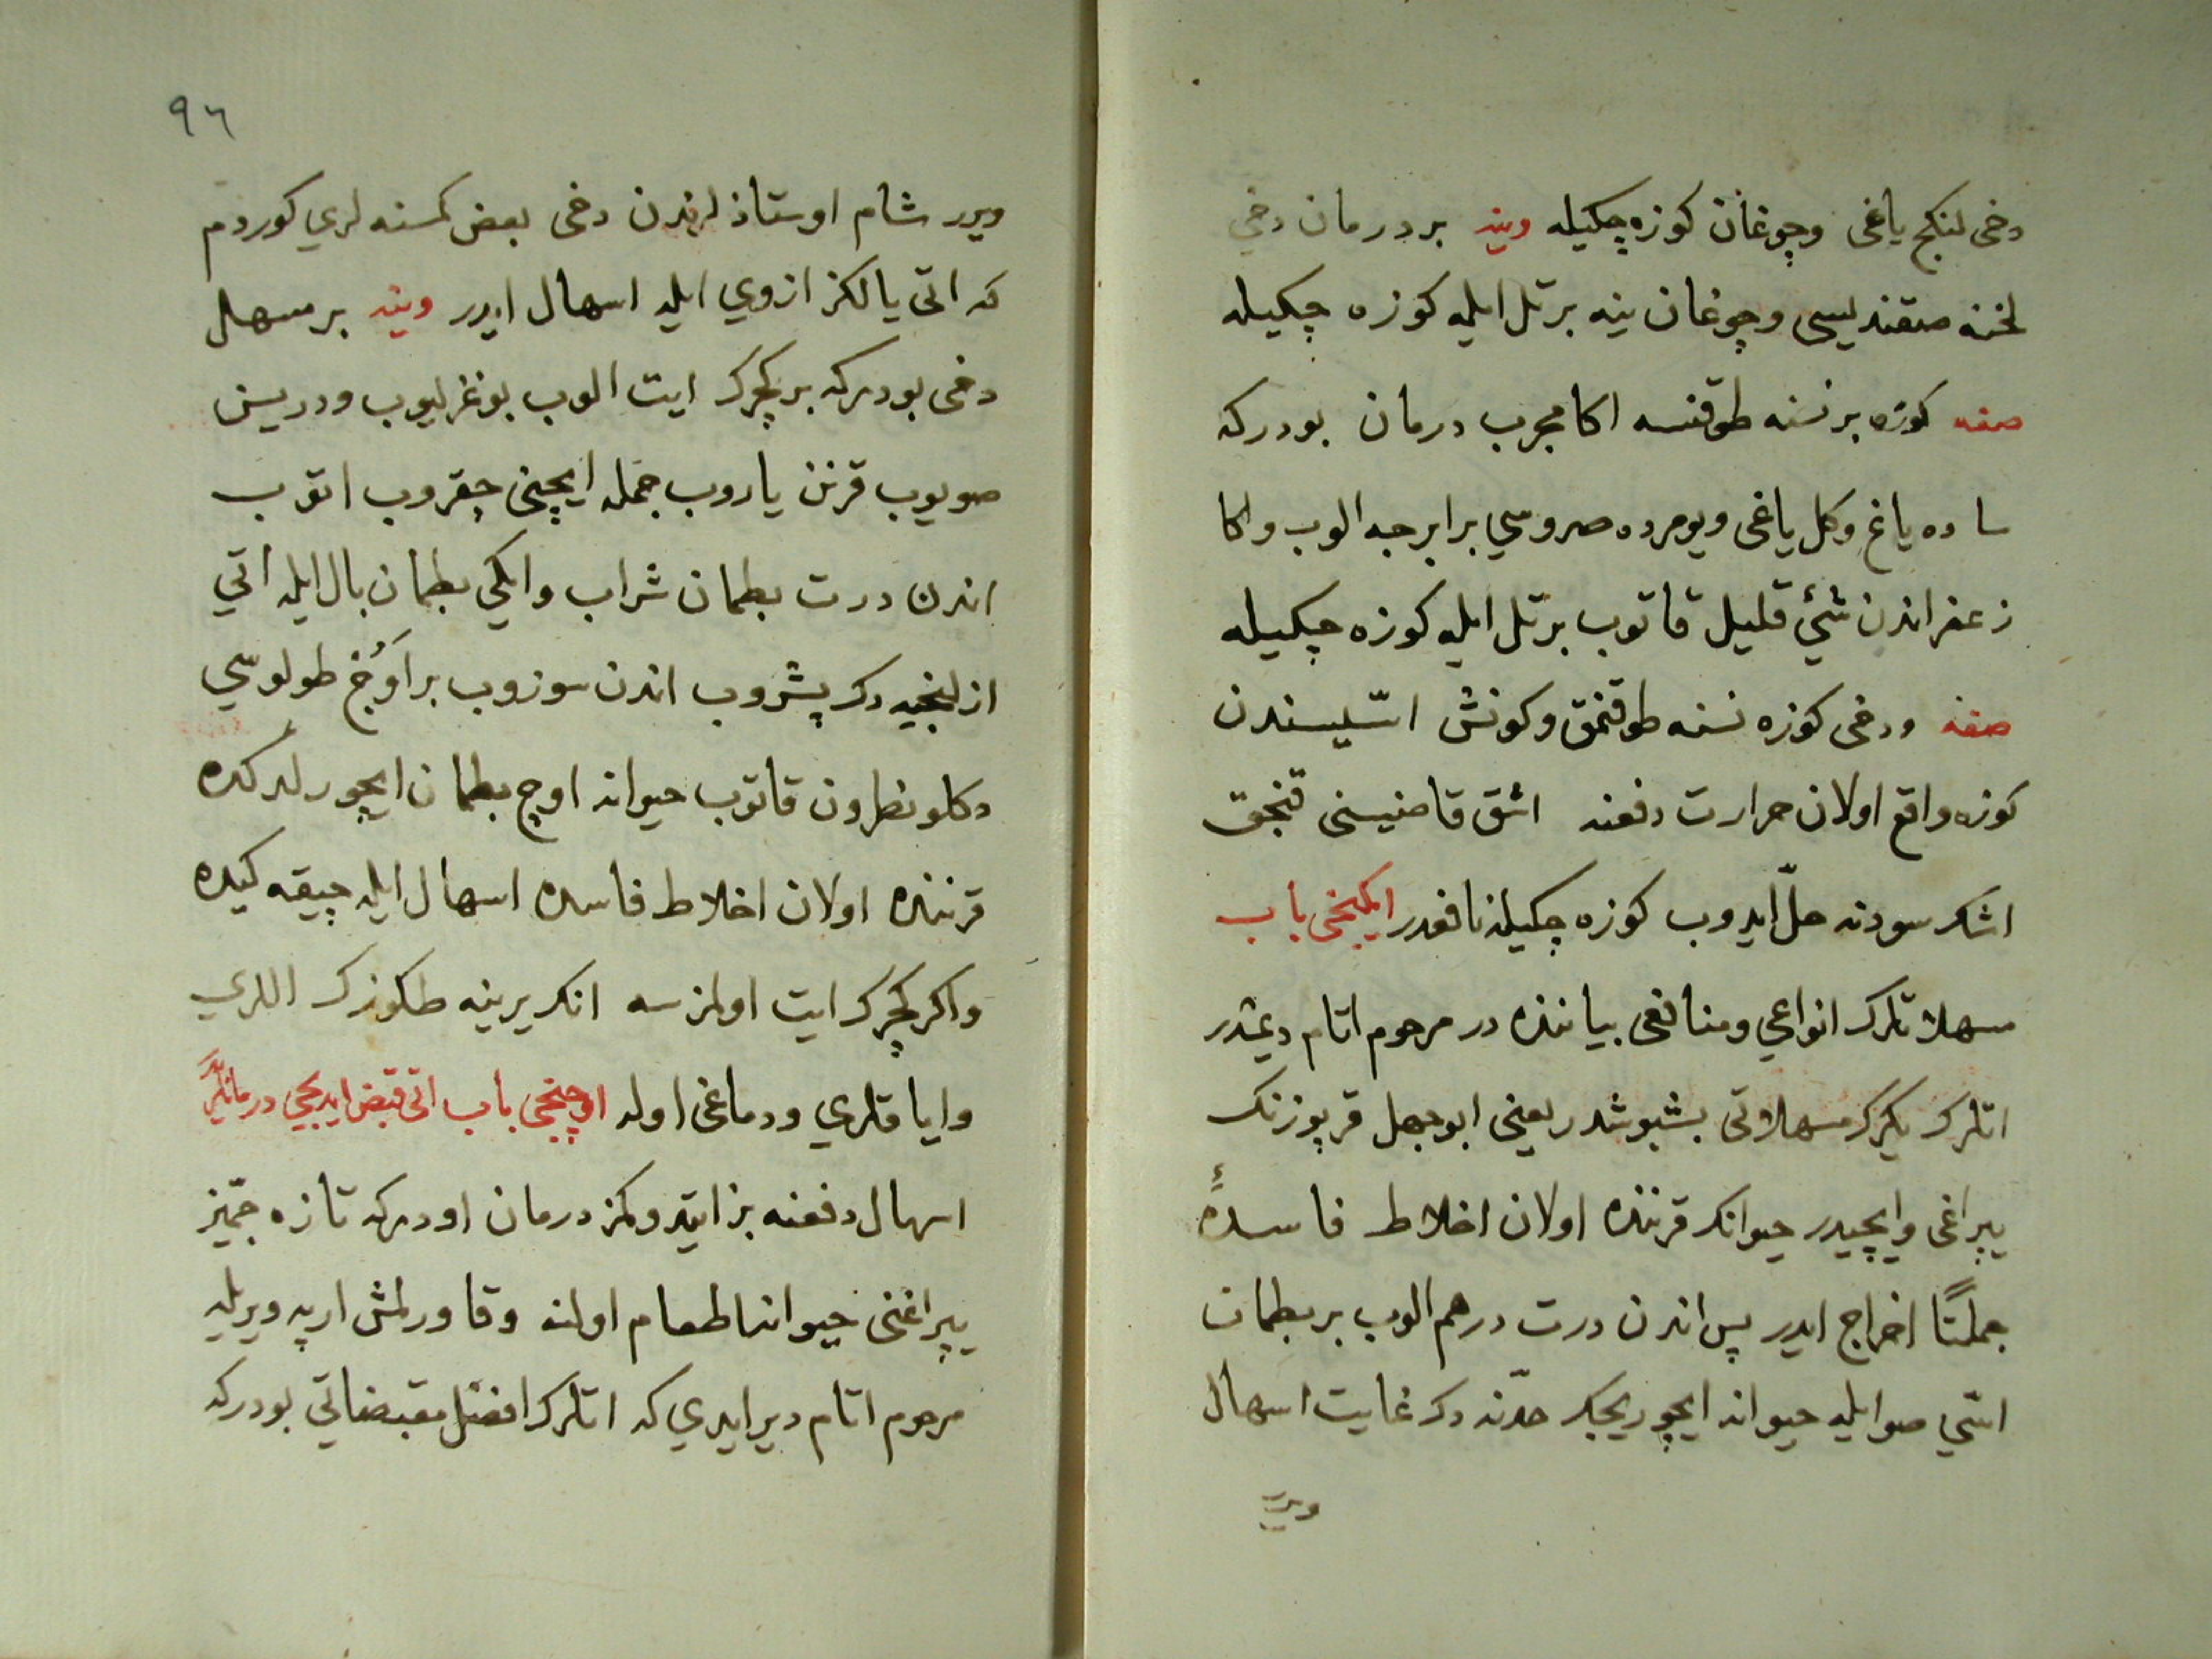 دخی لنكج یاغی وچوغان كوزه چكیله وینه بر درمان دخی
لخنه صقندیسی وچوغان ینه بر تل ایله كوزه چكیله
صفه كوزه بر نسنه طوقنسه اكا مجرب درمان بودركه
ساده یاغ وكل یاغی ویومرده صروسی برابرجه الوب واكا
زعفراندن شئ قلیل قاتوب بر تل ایله كوزه چكیله
صفه ودخی كوزه نسنه طوقنمق وكونش اسّیسندن
كوزه واقع اولان حرارت دفعنه اشق قاصنیسنی قنجق
اشك سودنه حلّ ایدوب كوزه چكیله نافعدر ایكنجی باب
مسهلاتلرك انواعی ومنافعی بیاننده در مرحوم اتام دیمشدر
اتلرك یكرك مسهلاتی بشبوشدر یعنی ابوجهل قرپوزنك
یپراغی وایچیدر حیوانك قرننده اولان اخلاط فاسدهٔ
جملتًا اخراج ایدر پس اندن درت درهم الوب بر بطمان
اسّی صو ایله حیوانه ایچوریجك حدّنه دك غایت اسهال
ویرر
٩٦
ویرر شام اوستاذلرندن دخی بعض كمسنه لری كوردم
كه اتی یالكز ازوی ایله اسهال ایدر وینه بر مسهل
دخی بودركه بر كچرك ایت الوب بوغزلیوب ودریسن
صویوب قرنن یاروب جمله ایچنی چقروب اتوب
اندن درت بطمان شراب وایكی بطمان بال ایله اتی
ازلینجیه دك پشروب اندن سوزوب بر اَوُج طولوسی
دكلو نطرون قاتوب حیوانه اوچ بطمان ایچورلر كده
قرننده اولان اخلاط فاسده اسهال ایله چیقه كیده
واكر كچرك ایت اولمزسه انك یرینه طكوزك اللری
وایاقلری ودماغی اوله اوچنجی باب اتی قبض ایدیجی درمانلردر
اسهال دفعنه بز ایتدوكمز درمان اودركه تازه جمّیز
یپراغنی حیوانه طعام اولنه وقاورلمش ارپه ویریله
مرحوم اتام دیر ایدی كه اتلرك افضل مقبضاتی بودركه